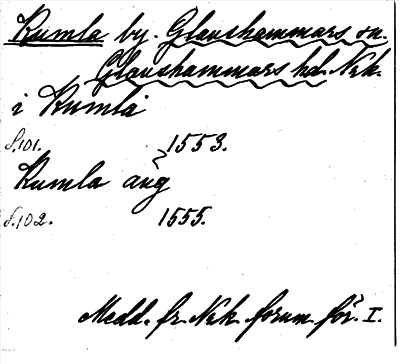 Kumla by. Glanshammars sn.
Glanshammars hd. Närk.
i Kumla
s.101. 1553.
Kumla äng
s.102. 1555.
Medd. fr. Närk. fornm. för. I.